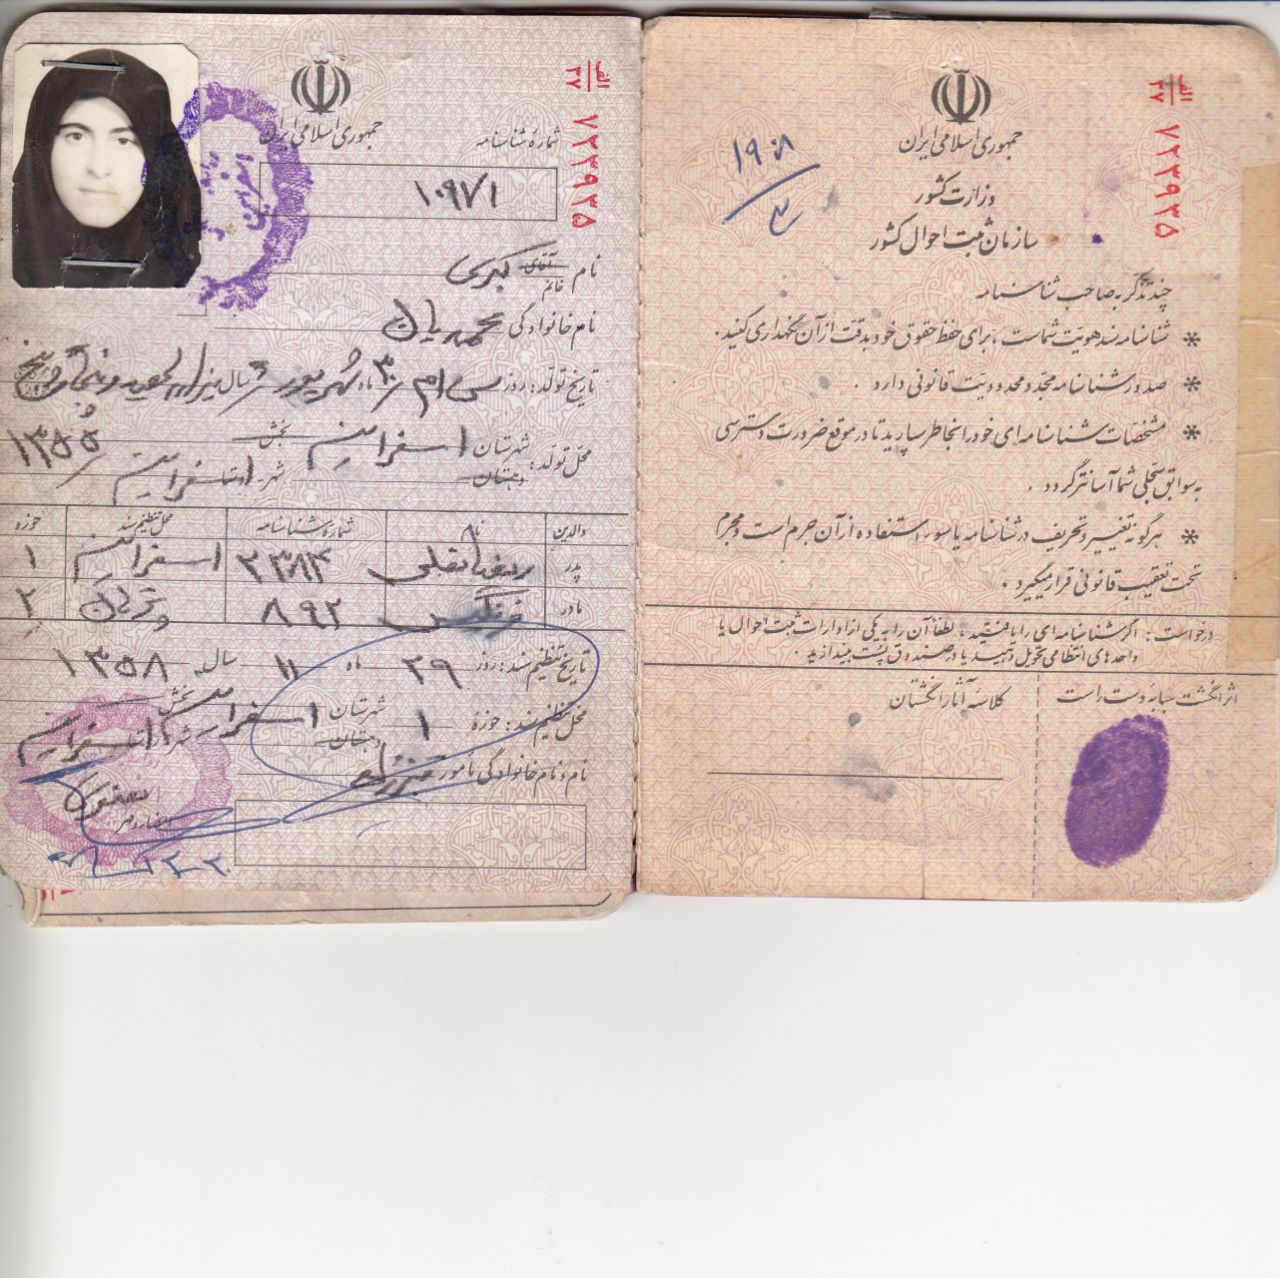 الف
۳۷
۷۲۳۹۳۵
جمهوری اسلامی ایران
وزارت کشور
سازمان ثبت احوال کشور
۱۹۰۸
چند تذکر به صاحب شناسنامه
* شناسنامه سند هویت شماست ، برای حفظ حقوق خود بدقت از آن نگهداری کنید .
* صدور شناسنامه مجدد محدودیت قانونی دارد .
* مشخصات شناسنامه ای خود را بخاطر بسپارید تا در موقع ضرورت دسترسی
به سوابق سجلی شما آسانتر گردد .
* هر گونه تغییر و تحریف در شناسنامه یا سوء استفاده از آن جرم است و مجرم
تحت تعقیب قانونی قرار میگیرد .
درخواست : اگر شناسنامه ای را یافتید لطفاً آن را به یکی از ادارات ثبت احوال یا
واحدهای انتظامی تحویل دهید یا در صندوق پست بیندازید .
اثر انگشت سبابه دست راست
کلاسه آثار انگشتان
الف
۳۷
۷۲۳۹۳۵
جمهوری اسلامی ایران
شماره شناسنامه
۱۰۹۷۱
نام آقای خانم کبری
نام خانوادگی محمدیان
تاریخ تولد : روز سی ام ۳۰ ماه شهریور ۶ سال هزار و سیصد و پنجاه و پنج
۱۳۵۵
محل تولد : شهرستان اسفراین بخش
دهستان شهر اسفراین
والدین نام شماره شناسنامه محل تنظیم سند حوزه
پدر رمضانقلی ۲۳۸۴ اسفراین ۱
مادر نرگس ۸۹۲ ۲
تاریخ تنظیم سند : روز ۲۹ ماه ۱۱ سال ۱۳۵۸
محل تنظیم سند : حوزه ۱ شهرستان اسفراین بخش
دهستان شهر اسفراین
نام و نام خانوادگی مأمور
امضاء و مهر